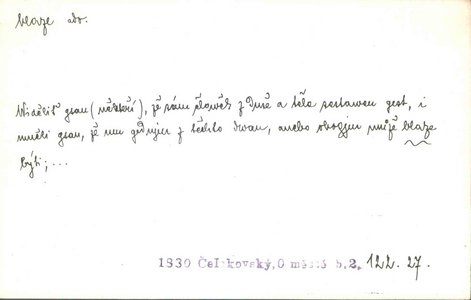 blaze adv.
Widěliť gsau (někteří), že sám člowěk z Duše a těla sestawen gest, i
uměli gsau, že mu gednjm z těchto dwau, anebo obogjm může blaze
býti; ...
1830 Čelakovský, O městě b. 2, 122. 27.